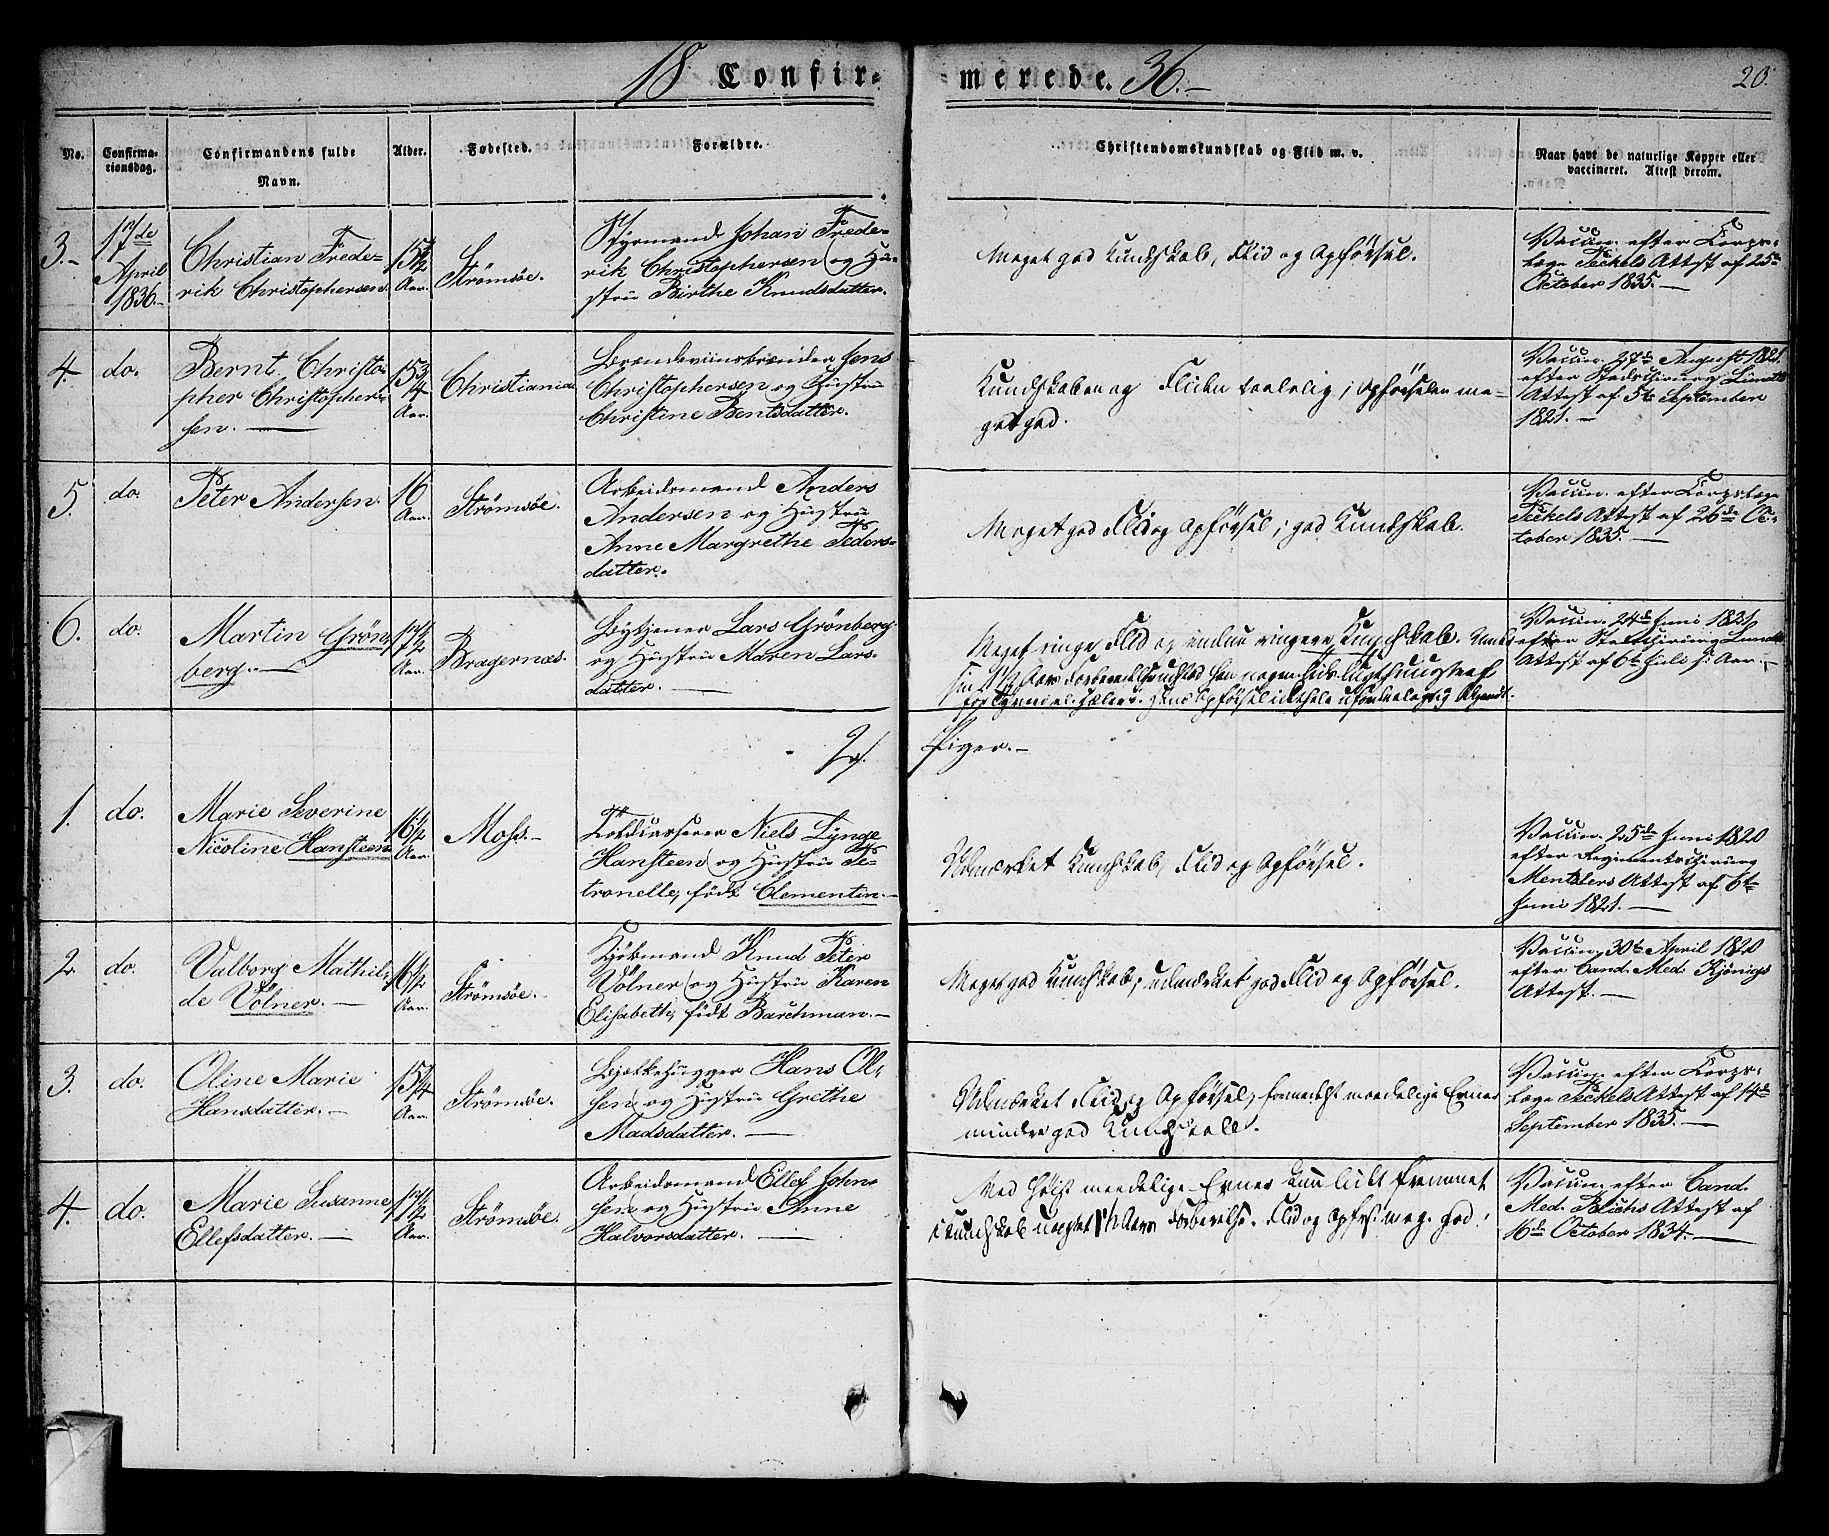 18 Confir-
merede. 36.-
20.
No.
Confirma-
tionsdag.
Confirmandens fulde
Navn.
Alder.
Fødested.
Forældre.
Christendomskundskab og Flid m. v.
Naar havt de naturlige Kopper eller
vaccineret. Attest derom.
3.-
17de
April
1836.-
Christian Frede-
rik Christophersen
15 1/2
Aar.
Strömsöe.
Styrmand Johan Frede-
rik Christophersen og Hu-
strue Birthe Knudsdatter.
Meget god Kundskab, Flid og Opförsel.
Vaccin. efter Corps-
læge Teckels Attest af 25de
October 1835.-
4.
do.
Bernt Christo-
pher Christopher-
sen.-
15 3/4
Aar.
Christiania
Brændeviinsbrænder Jens
Christophersen og Hustrue
Christine Berntsdatter.
Kundskaben og Fliden taalelig; Opförselen me-
get god.
Vaccin. 27de August 1821.
efter Stadschirurg
Attest af 5te September
1821.-
5.
do.
Peter Andersen.
16
Aar.
Strömsöe.
Arbeidsmand Anders
Andersen og Hustrue
Anne Margrethe Peders-
datter.
Meget god Flid og Opförsel; god Kundskab.
Vaccin. efter Corpslæge
Teckels Attest af 26de Oc-
tober 1835.-
6.
do.
Martin Grön-
berg.-
17 1/2
Aar.
Bragernæs.
Bytjener Lars Grönberg
og Hustrue Maren Lars-
datter.-
Meget ringe Flid og endnu ringere Kundskab.
Vaccin. 24de Juni 1821
efter Stadschirurg
Attest af 6te Juli s: Aar.-
2/.
Piger.-
1.
do.
Marie Severine
Nicoline Hansteen
16 1/2
Aar.
Moss.-
Toldcasserer Niels Lynge
Hansteen og Hustrue Pe-
tronelle, födt Clementin.-
Udmærket Kundskab, Flid og Opförsel.
Vaccin. 25de Juni 1820
efter Regimentschirurg
Mentzlers Attest af 6te
Juni 1821.-
2.
do.
Valborg Mathil-
de Völner.-
16 1/2
Aar.
Strömsöe.-
Kjöbmand Knud Peter
Völner og Hustrue Karen
Elisabeth, födt Barchman.-
Meget god Kundskab; udmærket god Flid og Opförsel.
Vaccin. 30te April 1820
efter Cand. Med. Kjönigs
Attest.-
3.
do.
Oline Marie
Hansdatter.-
15 1/4
Aar.
Strömsöe.
Bjelkehugger Hans Ol-
sen og Hustrue Grethe
Madsdatter.-
Udmærket Flid og Opförsel, formedelst maadelige Evner
mindre god Kundskab.
Vaccin. efter Corps-
læge Teckels Attest af 14de
September 1835.-
4.
do.
Marie Susanne
Ellefsdatter.-
17 1/2
Aar.
Strömsöe.
Arbeidsmand Ellef John-
sen og Hustrue Anne
Halvorsdatter.-
Med höist maadelige Evner kun lidt fremmet
i Kundskab uagtet 1 1/2 Aars Forberedelse. Flid og Opfrs: meg. god.
Vaccin. efter Cand.
Med. Blichs Attest af
16de October 1834.-